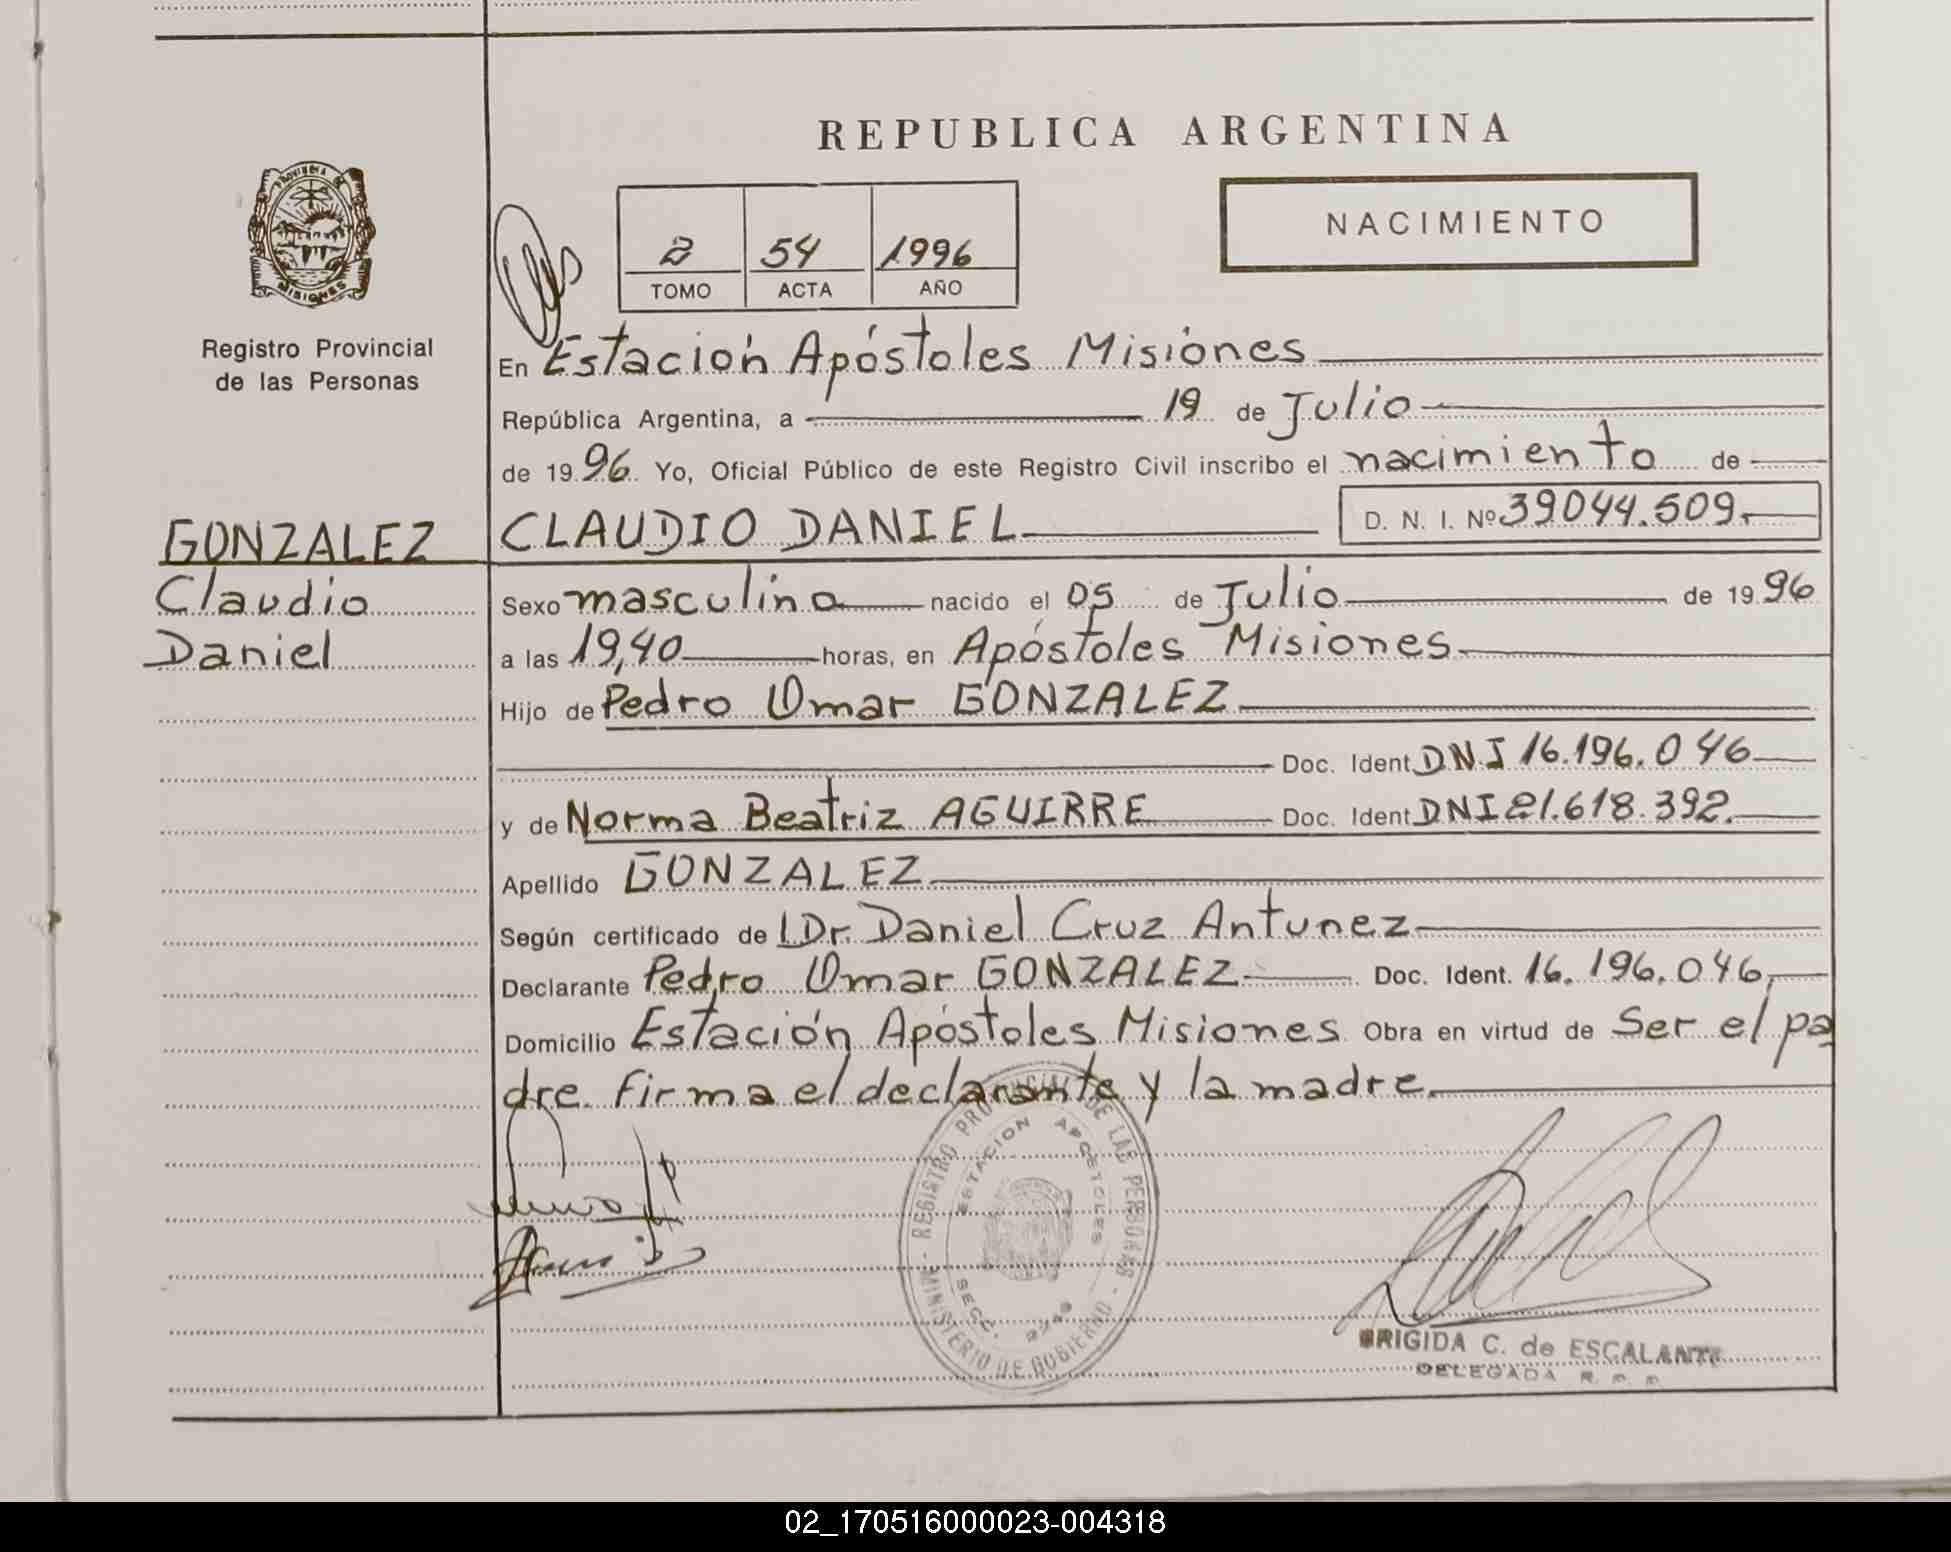 REPUBLICA ARGENTINA
PROVINCIA DE
MISIONES
Registro Provincial
de las Personas
2 54 1996
TOMO ACTA AÑO
NACIMIENTO
En Estación Apóstoles Misiones
República Argentina, a 19 de Julio
de 1996 Yo, Oficial Público de este Registro Civil inscribo el nacimiento de
GONZALEZ CLAUDIO DANIEL D. N. I. Nº 39044.509.
Claudio
Daniel
Sexo masculino nacido el 05 de Julio de 1996
a las 19,40 horas, en Apóstoles Misiones
Hijo de Pedro Omar GONZALEZ
Doc. Ident DNI 16.196.046
y de Norma Beatriz AGUIRRE Doc. Ident DNI 21.618.392.
Apellido GONZALEZ
Según certificado de Dr. Daniel Cruz Antunez
Declarante Pedro Omar GONZALEZ Doc. Ident. 16.196.046,
Domicilio Estación Apóstoles Misiones Obra en virtud de Ser el pa
dre. Firma el declarante y la madre.
REGISTRO PROVINCIAL DE LAS PERSONAS
ESTACION APOSTOLES
SECC.
MINISTERIO DE GOBIERNO
BRIGIDA C. de ESCALANTE
DELEGADA R. P. P.
02_170516000023-004318